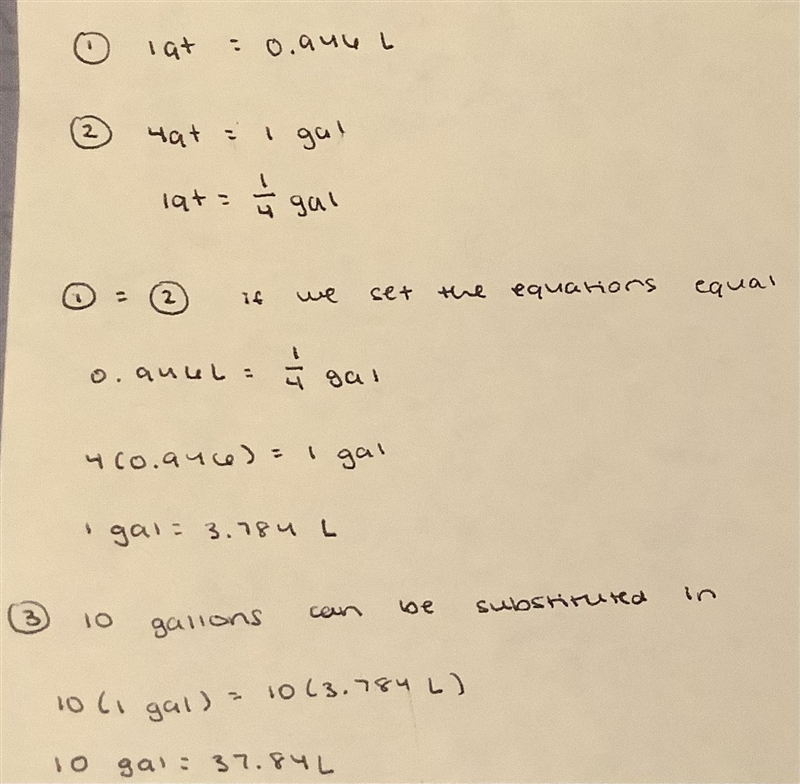 ① 1qt = 0.946 L
② 4qt = 1 gal
1qt = 1/4 gal
① = ② if we set the equations equal
0.946L = 1/4 gal
4(0.946) = 1 gal
1 gal = 3.784 L
③ 10 gallons can be substituted in
10(1 gal) = 10(3.784 L)
10 gal = 37.84L